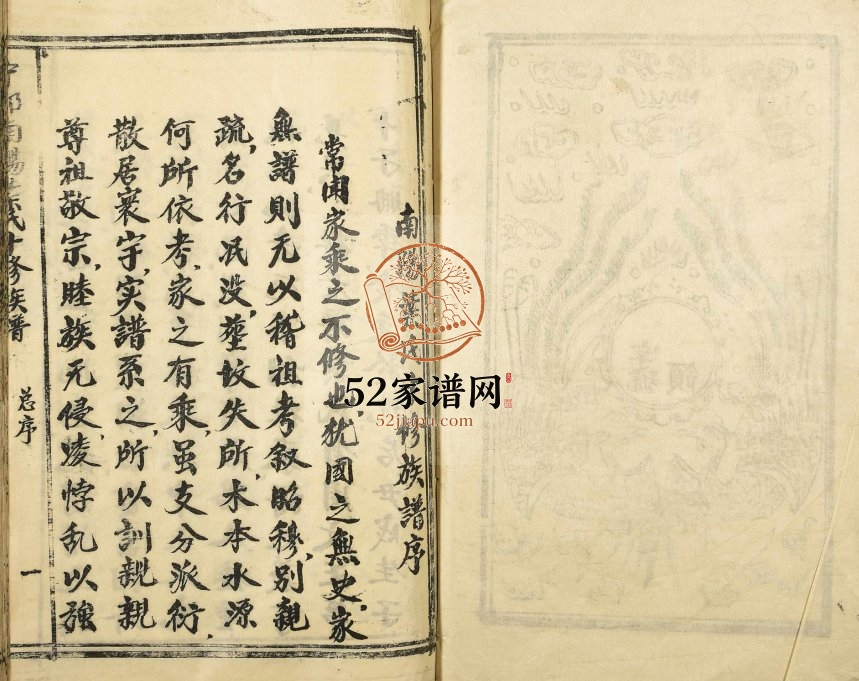 南陽葉氏 修族譜序
常闻家乘之不修也，犹國之無史，家
無譜則无以稽祖考叙昭穆，别親
疏，名行泯没，茔坟失所，木本水源
何所依考，家之有乘，虽支分派衍，
散居寰宇，实譜系之，所以訓親親
尊祖敬宗，睦族无侵凌悖乱以強
南陽 氏十修族普
总序
一
52家谱网
52jiapu.com